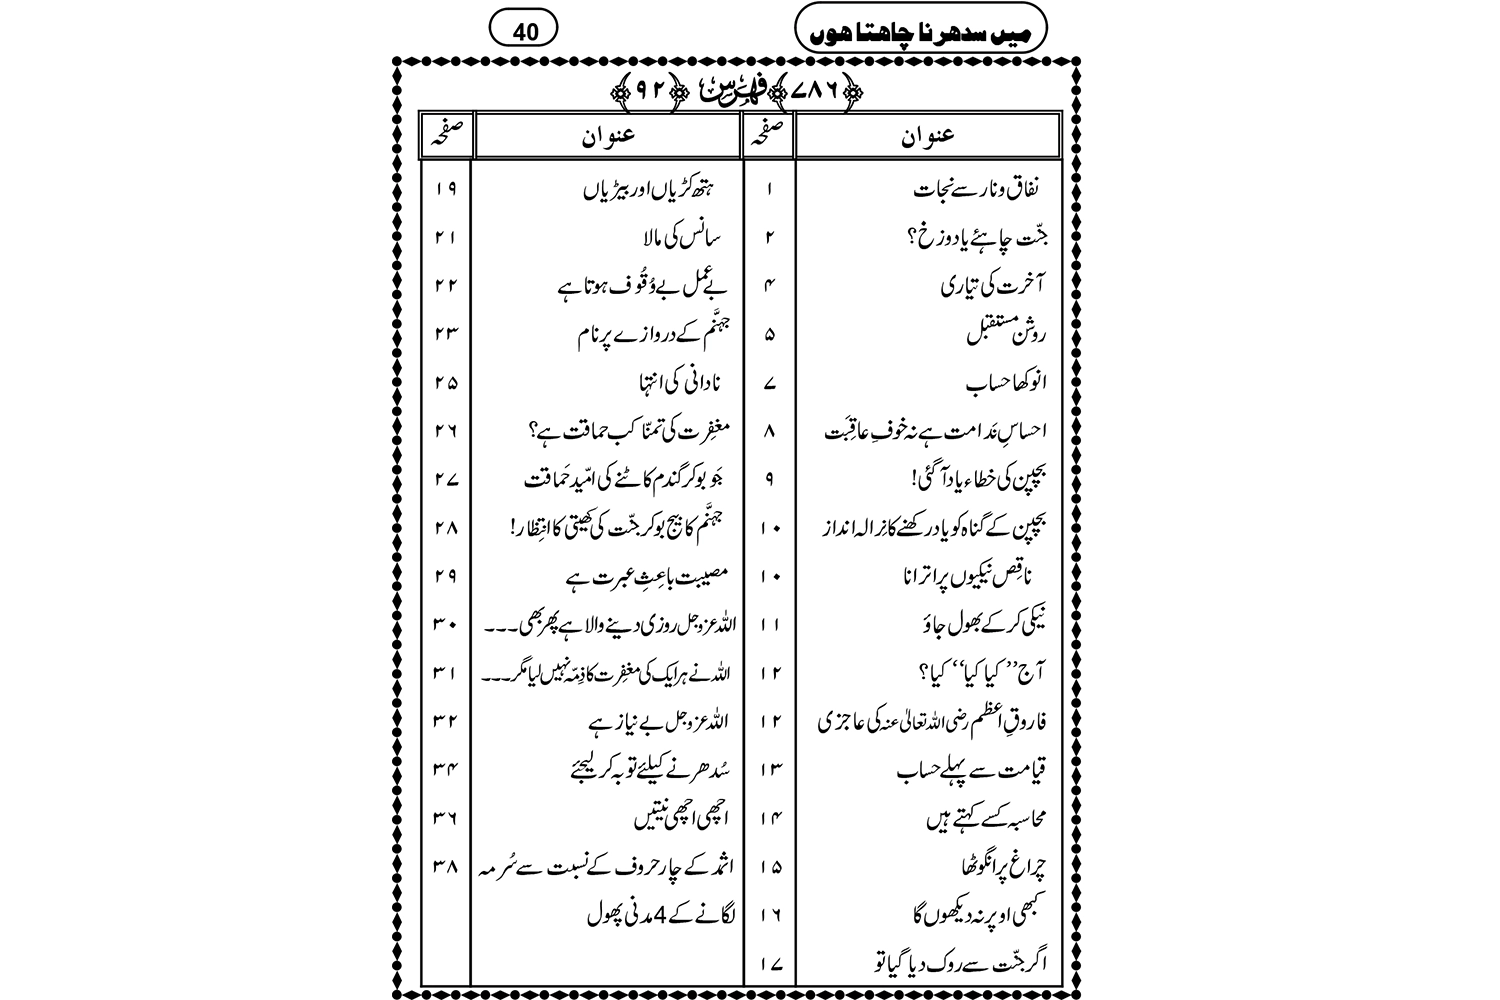 میں سدھرنا چاھتا ھوں
40
﴿۷۸۶﴾ فہرس ﴿۹۲﴾
عنوان صفحہ عنوان صفحہ
نفاق ونار سے نجات ۱ ہتھکڑیاں اور بیڑیاں ۱۹
جنّت چاہئے یا دوزخ؟ ۲ سانس کی مالا ۲۱
آخرت کی تیّاری ۴ بے عمل بے وُقُوف ہوتا ہے ۲۲
روشن مستقبل ۵ جہنَّم کے دروازے پر نام ۲۳
انوکھا حساب ۷ نادانی کی انتہا ۲۵
احساسِ نَدامت ہے نہ خوفِ عاقِبَت ۸ مغفِرت کی تمنّا کب حماقت ہے؟ ۲۶
بچپن کی خطاء یاد آگئی! ۹ جَو بو کر گندم کاٹنے کی امّید حَماقت ۲۷
بچپن کے گناہ کو یاد رکھنے کا نِرالہ انداز ۱۰ جہنَّم کا بیج بو کر جنّت کی کھیتی کا انتِظار! ۲۸
ناقِص نیکیوں پر اترانا ۱۰ مصیبت باعِثِ عبرت ہے ۲۹
نیکی کر کے بھول جاؤ ۱۱ اللہ عزوجل روزی دینے والا ہے پھر بھی ۔۔۔ ۳۰
آج ’’کیا کیا‘‘ کیا؟ ۱۲ اللہ نے ہر ایک کی مغفِرت کا ذِمّہ نہیں لیا مگر ۔۔۔ ۳۱
فاروقِ اعظم رضی اللہ تعالیٰ عنہ کی عاجزی ۱۲ اللہ عزوجل بے نیاز ہے ۳۲
قیامت سے پہلے حساب ۱۳ سُدھرنے کیلئے توبہ کر لیجئے ۳۴
محاسبہ کسے کہتے ہیں ۱۴ اچھی اچھی نیّتیں ۳۶
چراغ پر انگوٹھا ۱۵ اثمد کے چار حروف کے نسبت سے سُرمہ ۳۸
کبھی اوپر نہ دیکھوں گا ۱۶ لگانے کے 4 مدنی پھول
اگر جنّت سے روک دیا گیا تو ۱۷